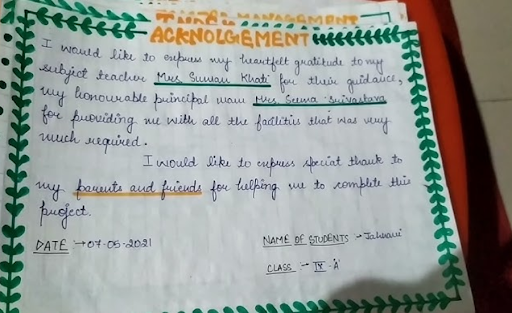 MANAGEMENT
ACKNOLGEMENT
I would like to express my heartfelt gratitude to my
subject teacher Mrs Suman Khati for their guidance,
my honourable principal mam Mrs Seema Srivastava
for providing me with all the facilities that was very
much required.
I would like to express special thank to
my parents and friends for helping me to complete this
project.
DATE → 07-05-2021
NAME OF STUDENTS :- Jahnavi
CLASS :- IX - A